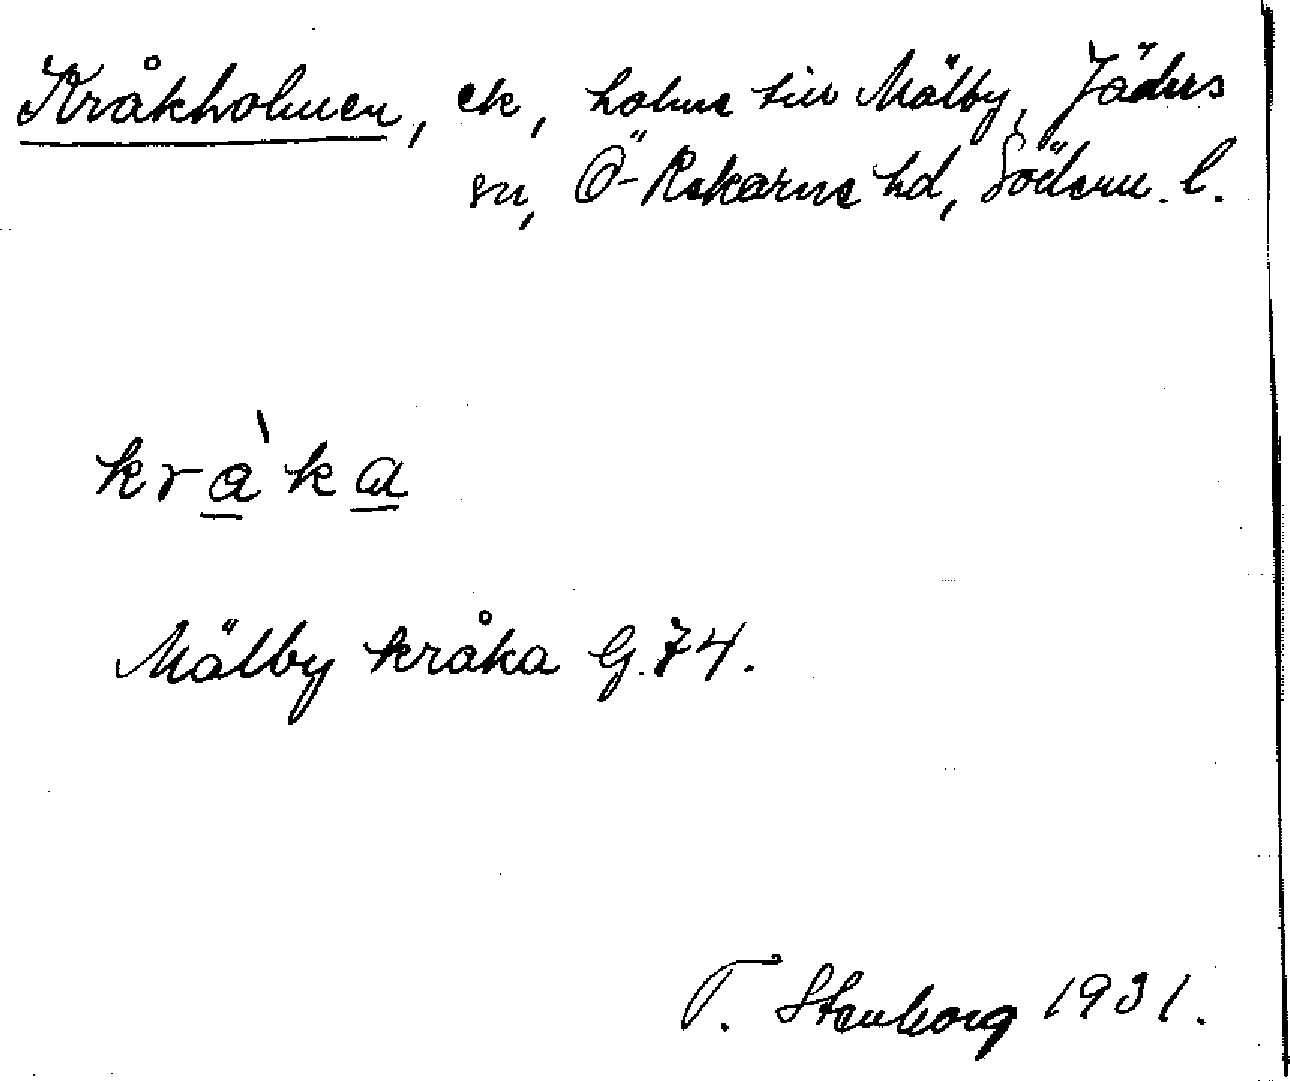 Kråkholmen, ek, holme till Mälby, Jäders
sn, Ö-Rekarne hd, Söderm. l.
krà̱ka̱
Mälby kråka G.74.
T. Stenborg 1931.